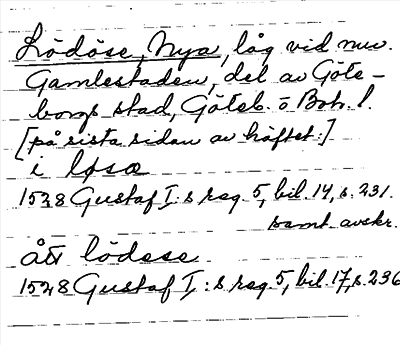 Lödöse, Nya, låg vid nuv.
Gamlestaden, del av Göte-
borgs stad, Göteb. o Boh. l.
[på sista sidan av häftet:]
i løsæ
1528 Gustaf I:s reg. 5, bil. 14, s. 231.
samt. avskr.
ått lödese
1528 Gustaf I:s reg. 5, bil. 17, s. 236